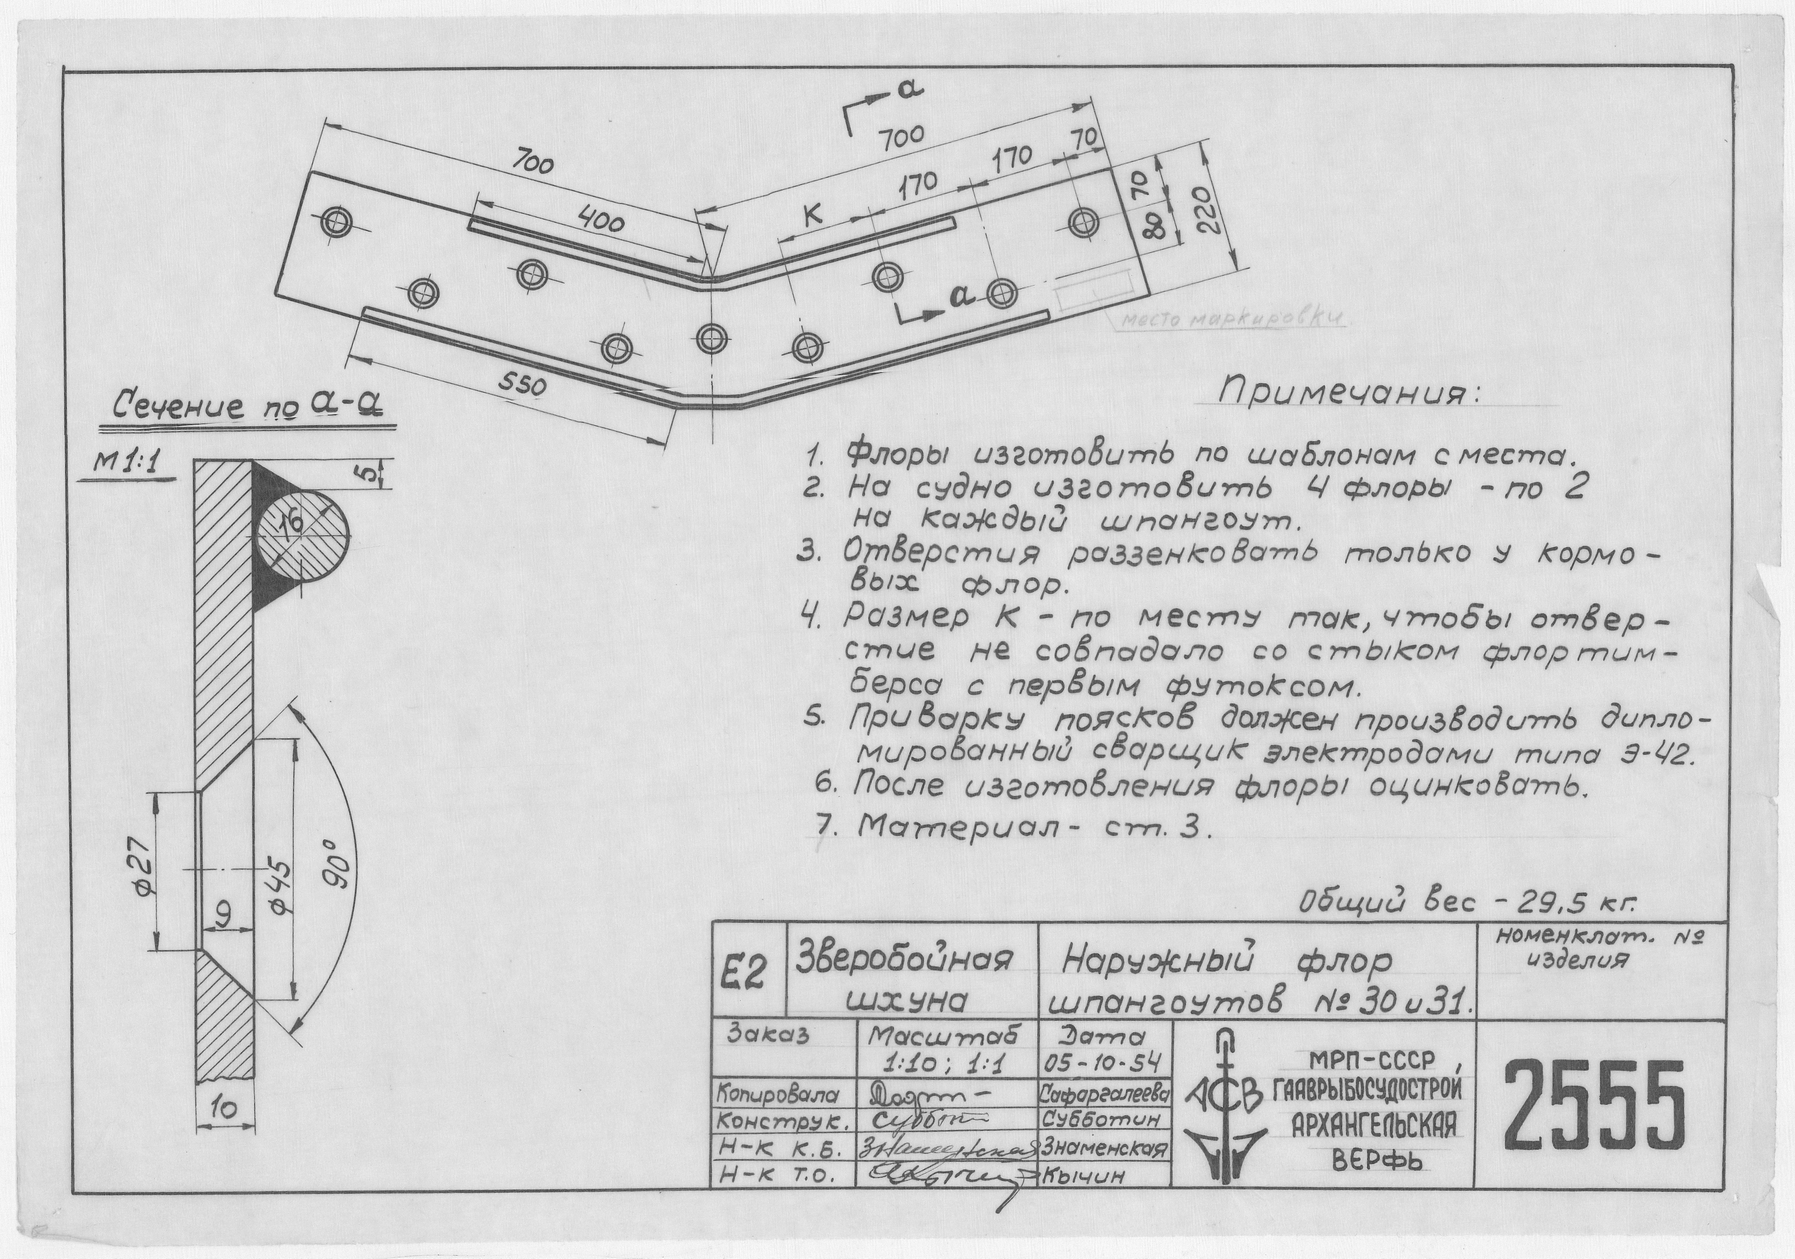 а
700
700
70
170
170
К
400
70
80
220
а
место маркировки
550
Сечение по а-а
М 1:1
5
16
ф27
9
ф45
90°
10
Примечания:
1. Флоры изготовить по шаблонам с места.
2. На судно изготовить 4 флоры - по 2
на каждый шпангоут.
3. Отверстия раззенковать только у кормо-
вых флор.
4. Размер К - по месту так, чтобы отвер-
стие не совпадало со стыком флортим-
берса с первым футоксом.
5. Приварку поясков должен производить дипло-
мированный сварщик электродами типа Э-42.
6. После изготовления флоры оцинковать.
7. Материал - ст. 3.
Общий вес - 29,5 кг.
Е2
Зверобойная
шхуна
Наружный флор
шпангоутов № 30 и 31.
Номенклат. №
изделия
Заказ
Масштаб
1:10; 1:1
Дата
05-10-54
Копировала
Сафаргалеева
Конструк.
Суббот
Субботин
Н-к К.Б.
Знаменская
Знаменская
Н-к Т.О.
Кычин
АСВ
МРП-СССР,
ГЛАВРЫБОСУДОСТРОЙ
АРХАНГЕЛЬСКАЯ
ВЕРФЬ
2555